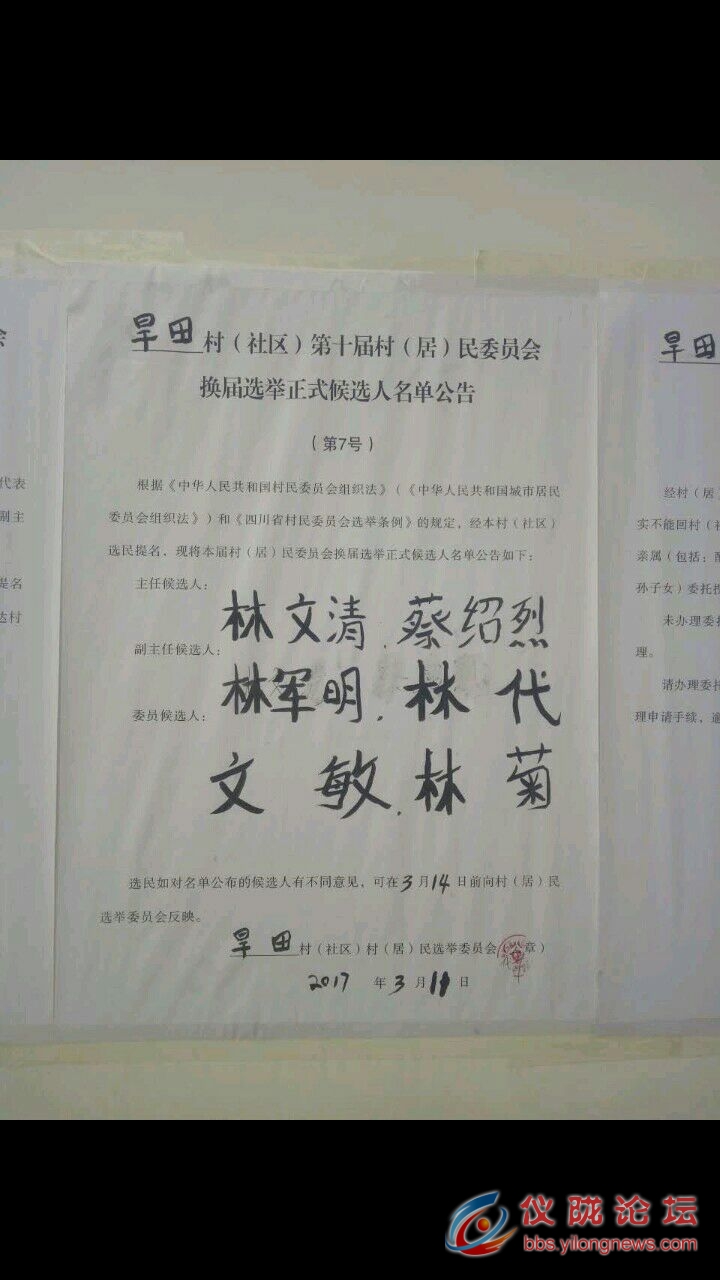 旱田村（社区）第十届村（居）民委员会
换届选举正式候选人名单公告
（第7号）
根据《中华人民共和国村民委员会组织法》（《中华人民共和国城市居民
委员会组织法》）和《四川省村民委员会选举条例》的规定，经本村（社区）
选民提名，现将本届村（居）民委员会换届选举正式候选人名单公告如下：
主任候选人：
林文清.蔡绍烈
副主任候选人：
林军明.林代
委员候选人：
文敏.林菊
选民如对名单公布的候选人有不同意见，可在3月14日前向村（居）民
选举委员会反映。
旱田村（社区）村（居）民选举委员会（公章）
2017年3月11日
会
代表
副主
是名
达村
旱田
经村（
实不能回村（社
亲属（包括：配
孙子女）委托投
未办理委托
理。
请办理委托
理申请手续，逾
仪陇论坛
bbs.yilongnews.com